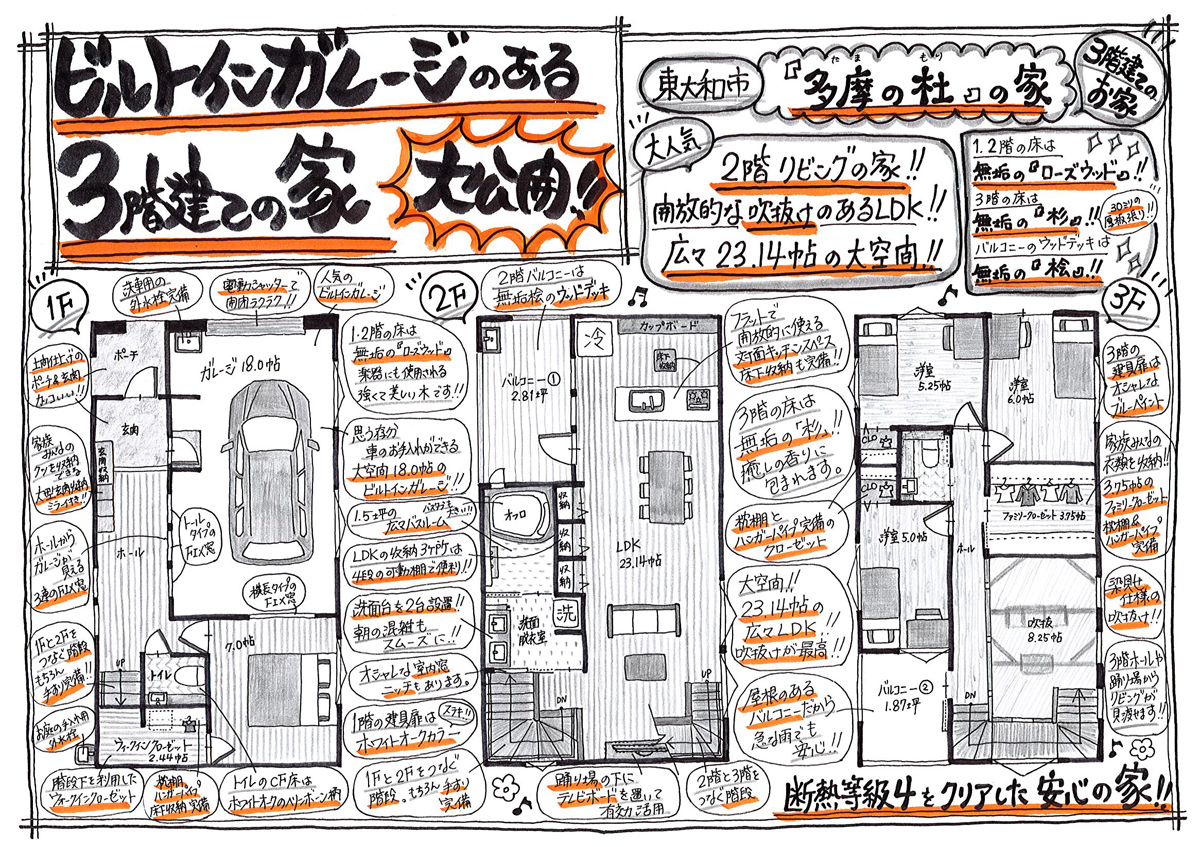 ビルトインガレージのある
3階建ての家
大公開!!
東大和市
たま もり
『多摩の杜』の家
3階建ての
お家
大人気
2階リビングの家!!
開放的な吹抜けのあるLDK!!
広々23.14帖の大空間!!
1.2階の床は
無垢の『ローズウッド』!!
3階の床は
無垢の『杉』!!
30ミリの
厚板張り!!
バルコニーのウッドデッキは
無垢の『桧』!!
1F
洗車用の
外水栓完備
電動シャッターで
開閉ラクラク!!
人気の
ビルトインガレージ
土間仕上げの
ポーチ&玄関
カッコいい!!
家族
みんなの
クツを収納
できる
大型玄関収納
ミラー付き!!
ホールから
ガレージが
見える
3連のFIX窓
1Fと2Fを
つなぐ階段
もちろん
手すり完備!!
お庭の手入れ用
外水栓
階段下を利用した
ウォークインクローゼット
枕棚
ハンガーパイプ
床下収納完備
トイレのCF床は
ホワイトオークのヘリンボーン柄
ポーチ
玄関
玄関収納
ホール
ガレージ 18.0帖
トール
タイプの
FIX窓
横長タイプの
FIX窓
7.0帖
UP
トイレ
ウォークインクローゼット
2.44帖
1.2階の床は
無垢の『ローズウッド』
楽器にも使用される
強くて美しい木です!!
思う存分
車のお手入れができる
大空間18.0帖の
ビルトインガレージ!!
1.5坪の
広々バスルーム
バスタブも
大きい!!
LDKの収納3ケ所は
4段の可動棚で便利!!
洗面台を2台設置!!
朝の混雑も
スムーズに…!!
オシャレな室内窓
ニッチもあります。
1階の建具扉は
ホワイトオークカラー
ステキ!!
1Fと2Fをつなぐ
階段。もちろん手すり
完備
2F
2階バルコニーは
無垢桧のウッドデッキ
バルコニー①
2.81坪
冷
カップボード
床下
収納
オフロ
収納
収納
収納
LDK
23.14帖
洗面
脱衣室
洗
DN
UP
踊り場の下に
テレビボードを置いて
有効活用
2階と3階を
つなぐ階段
フラットで
開放的に使える
対面キッチンスペース
床下収納も完備!!
3階の床は
無垢の「杉」!!
癒しの香りに
包まれます。
枕棚と
ハンガーパイプ完備の
クローゼット
大空間!!
23.14帖の
広々LDK!!
吹抜けが最高!!
屋根のある
バルコニーだから
急な雨でも
安心!!
3F
洋室
5.25帖
洋室
6.0帖
CLO
CLO
ファミリークローゼット 3.75帖
洋室 5.0帖
ホール
吹抜
8.25帖
バルコニー②
1.87坪
DN
3階の
建具扉は
オシャレな
ブルーペイント
家族みんなの
衣類を収納!!
3.75帖の
ファミリークローゼット
枕棚&
ハンガーパイプ
完備
梁見せ
仕様の
吹抜け!!
3階ホールや
踊り場から
リビングが
見渡せます!!
断熱等級4をクリアした安心の家!!